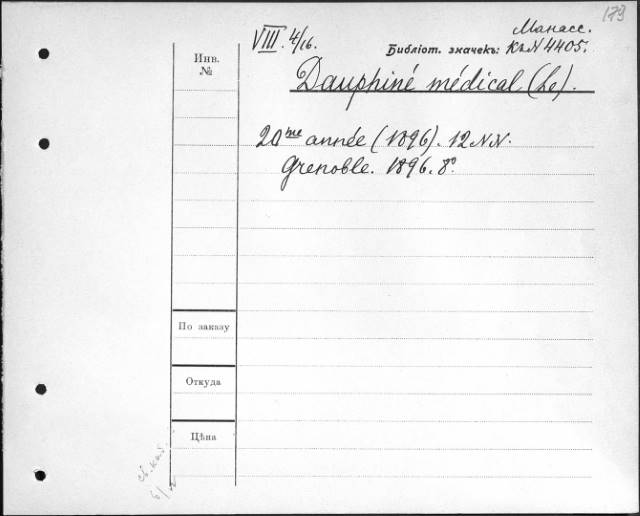 179
Манасс.
VIII. 4/16.
Библіот. значекъ: КъN 4405.
Инв.
№
Dauphiné médical (Le).
20me année (1896). 12 NN.
Grenoble. 1896. 8°.
По заказу
Откуда
Цѣна